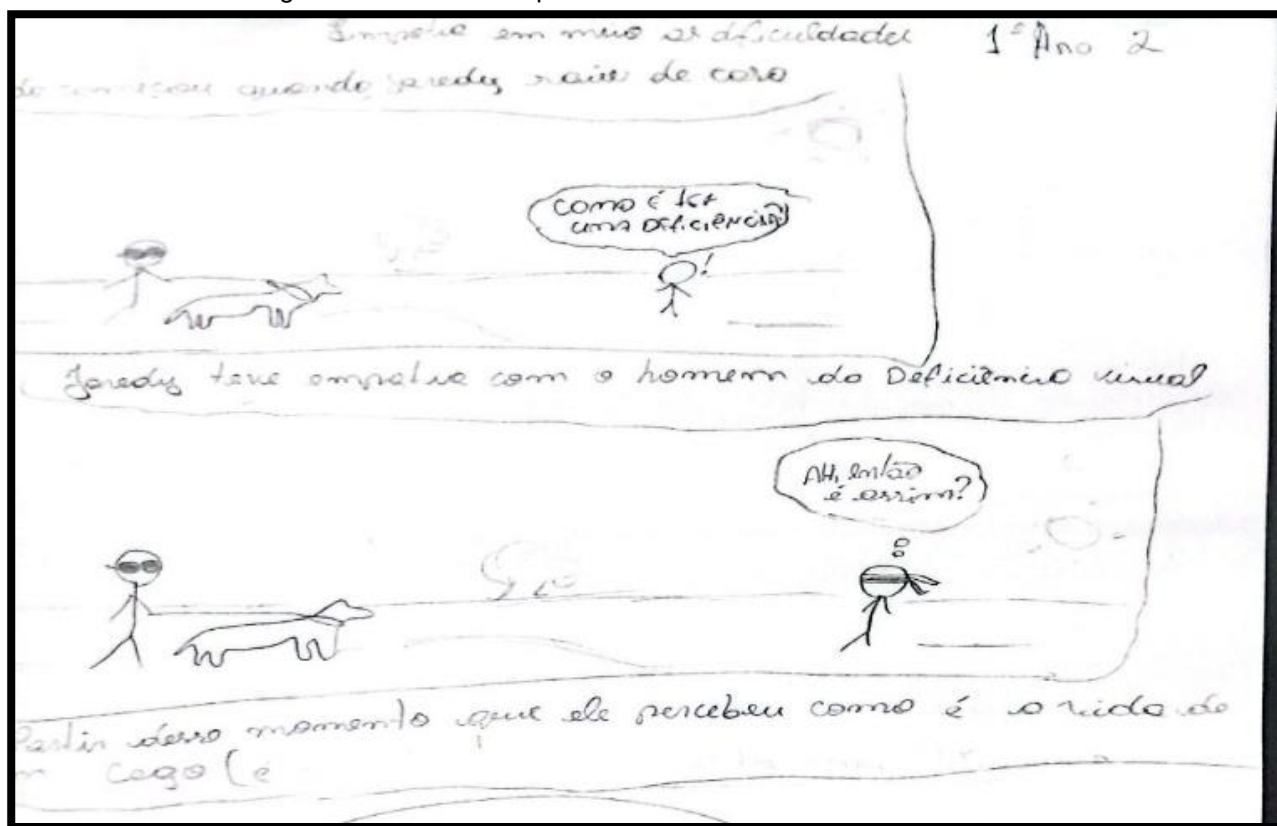 Empatia em meio as dificuldades 1º Ano 2
começou quando Jaredy saiu de casa
COMO É TER
UMA DEFICIÊNCIA?
!
Jaredy teve empatia com o homem da Deficiência visual
AH, então
é assim?
Partir desse momento que ele percebeu como é a vida de
cego (é